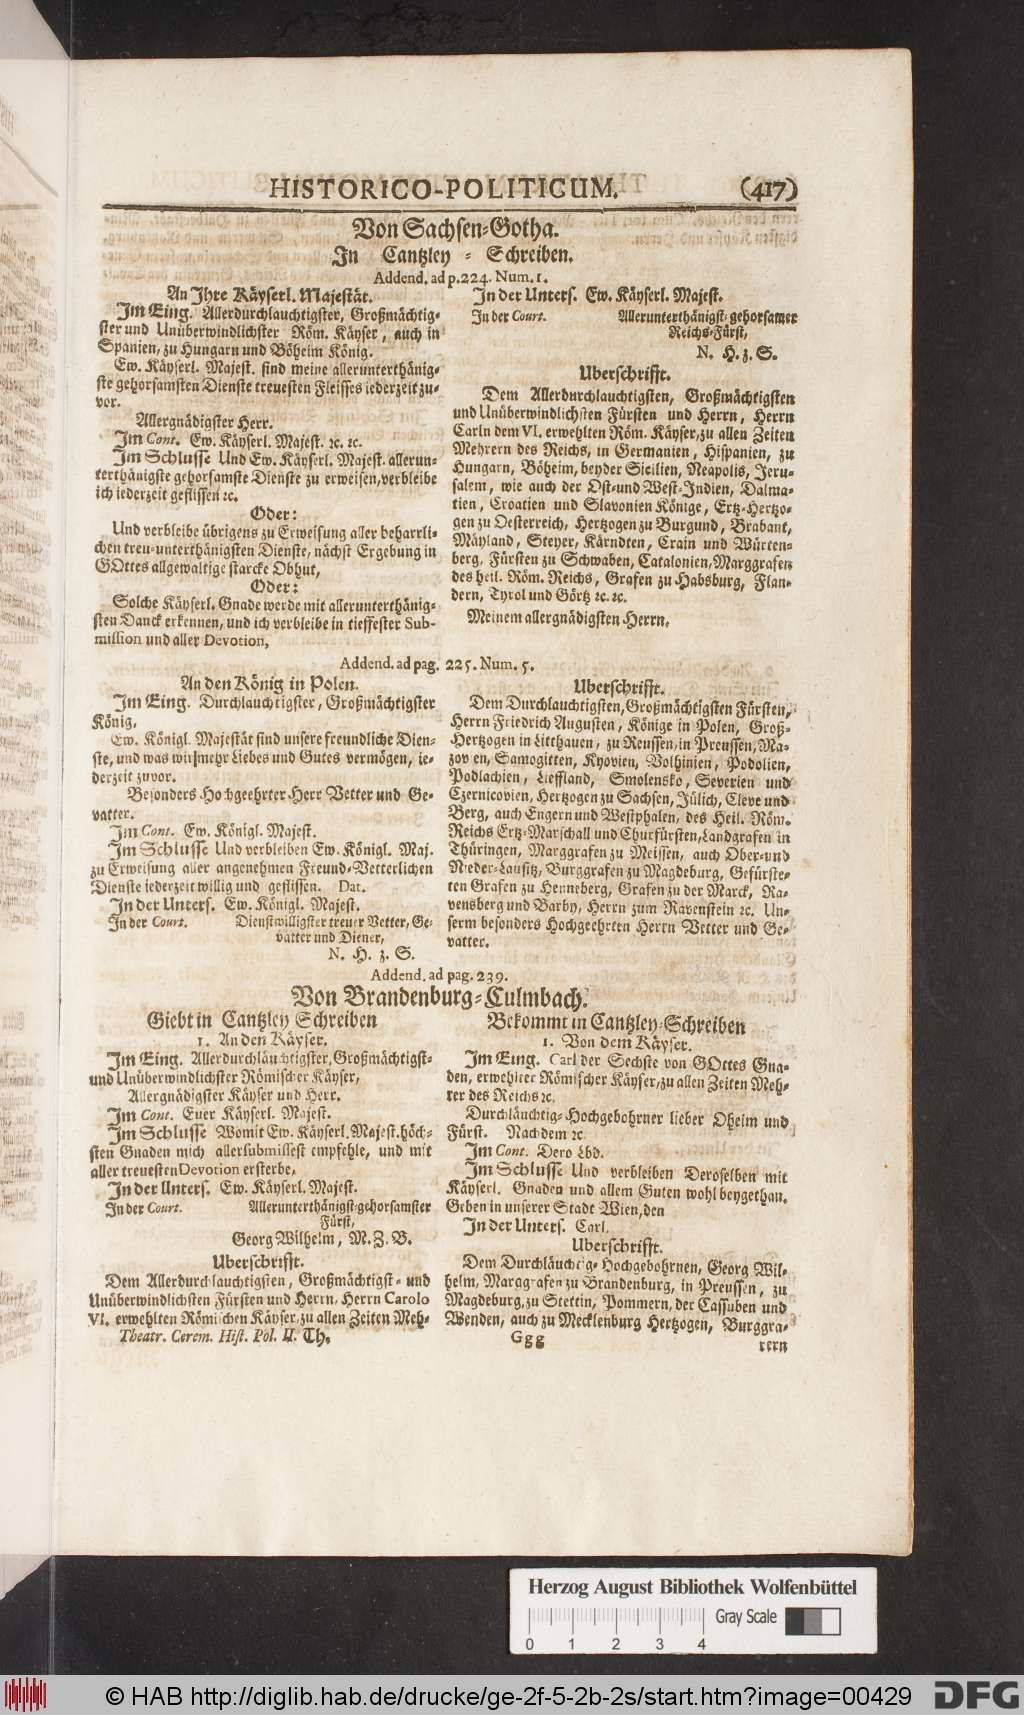 HISTORICO-POLITICUM. (417)
Von Sachsen-Gotha.
In Cantzley - Schreiben.
Addend. ad p. 224. Num. 1.
An Ihre Käyserl. Majestät.
Im Eing. Allerdurchlauchtigster, Großmächtig-
ster und Unüberwindlichster Röm. Käyser, auch in
Spanien, zu Hungarn und Böheim König.
Ew. Käyserl. Majest. sind meine allerunterthänig-
ste gehorsamsten Dienste treuesten Fleisses iederzeit zu-
vor.
Allergnädigster Herr.
Im Cont. Ew. Käyserl. Majest. ꝛc. ꝛc.
Im Schlusse Und Ew. Käyserl. Majest. allerun-
terthänigste gehorsamste Dienste zu erweisen, verbleibe
ich iederzeit geflissen ꝛc.
Oder:
Und verbleibe übrigens zu Erweisung aller beharrli-
chen treu-unterthänigsten Dienste, nächst Ergebung in
GOttes allgewaltige starcke Obhut,
Oder:
Solche Käyserl. Gnade werde mit allerunterthänig-
sten Danck erkennen, und ich verbleibe in tieffester Sub-
mission und aller Devotion,
In der Unters. Ew. Käyserl. Majest.
In der Court. Allerunterthänigst-gehorsamer
Reichs-Fürst,
N. H. z. S.
Uberschrifft.
Dem Allerdurchlauchtigsten, Großmächtigsten
und Unüberwindlichsten Fürsten und Herrn, Herrn
Carln dem VI. erwehlten Röm. Käyser, zu allen Zeiten
Mehrern des Reichs, in Germanien, Hispanien, zu
Hungarn, Böheim, beyder Sicilien, Neapolis, Jeru-
salem, wie auch der Ost-und West-Indien, Dalma-
tien, Croatien und Slavonien Könige, Ertz-Hertzo-
gen zu Oesterreich, Hertzogen zu Burgund, Brabant,
Mäyland, Steyer, Kärndten, Crain und Würten-
berg, Fürsten zu Schwaben, Catalonien, Marggrafen
des heil. Röm. Reichs, Grafen zu Habsburg, Flan-
dern, Tyrol und Görtz ꝛc. ꝛc.
Meinem allergnädigsten Herrn.
Addend. ad pag. 225. Num. 5.
An den König in Polen.
Im Eing. Durchlauchtigster, Großmächtigster
König,
Ew. Königl. Majestät sind unsere freundliche Dien-
ste, und was wir mehr Liebes und Gutes vermögen, ie-
derzeit zuvor.
Besonders Hochgeehrter Herr Vetter und Ge-
vatter.
Im Cont. Ew. Königl. Majest.
Im Schlusse Und verbleiben Ew. Königl. Maj.
zu Erweisung aller angenehmen Freund-Vetterlichen
Dienste iederzeit willig und geflissen. Dat.
In der Unters. Ew. Königl. Majest.
In der Court. Dienstwilligster treuer Vetter, Ge-
vatter und Diener,
N. H. z. S.
Uberschrifft.
Dem Durchlauchtigsten, Großmächtigsten Fürsten,
Herrn Friedrich Augusten, Könige in Polen, Groß-
Hertzogen in Litthauen, zu Reussen, in Preussen, Ma-
zovien, Samogitten, Kyovien, Volhinien, Podolien,
Podlachien, Lieffland, Smolensko, Severien und
Czernicovien, Hertzogen zu Sachsen, Jülich, Cleve und
Berg, auch Engern und Westphalen, des Heil. Röm.
Reichs Ertz-Marschall und Churfürsten, Landgrafen in
Thüringen, Marggrafen zu Meissen, auch Ober-und
Nieder-Lausitz, Burggrafen zu Magdeburg, Gefürste-
ten Grafen zu Henneberg, Grafen zu der Marck, Ra-
vensberg und Barby, Herrn zum Ravenstein ꝛc. Un-
serm besonders Hochgeehrten Herrn Vetter und Ge-
vatter.
Addend. ad pag. 239.
Von Brandenburg-Culmbach.
Giebt in Cantzley Schreiben
1. An den Käyser.
Im Eing. Allerdurchläuchtigster, Großmächtigst-
und Unüberwindlichster Römischer Käyser,
Allergnädigster Käyser und Herr.
Im Cont. Euer Käyserl. Majest.
Im Schlusse Womit Ew. Käyserl. Majest. höch-
sten Gnaden mich allersubmissest empfehle, und mit
aller treuesten Devotion ersterbe,
In der Unters. Ew. Käyserl. Majest.
In der Court. Allerunterthänigst-gehorsamster
Fürst,
Georg Wilhelm, M. Z. B.
Uberschrifft.
Dem Allerdurchlauchtigsten, Großmächtigst- und
Unüberwindlichsten Fürsten und Herrn, Herrn Carolo
VI. erwehlten Römischen Käyser, zu allen Zeiten Meh-
Bekommt in Cantzley-Schreiben
1. Von dem Käyser.
Im Eing. Carl der Sechste von GOttes Gna-
den, erwehlter Römischer Käyser, zu allen Zeiten Meh-
rer des Reichs ꝛc.
Durchläuchtig-Hochgebohrner lieber Oheim und
Fürst. Nachdem ꝛc
Im Cont. Dero Lbd.
Im Schlusse Und verbleiben Deroselben mit
Käyserl. Gnaden und allem Guten wohl beygethan.
Geben in unserer Stadt Wien, den
In der Unters. Carl.
Uberschrifft.
Dem Durchläuchtig-Hochgebohrnen, Georg Wil-
helm, Marggrafen zu Brandenburg, in Preussen, zu
Magdeburg, zu Stettin, Pommern, der Cassuben und
Wenden, auch zu Mecklenburg Hertzogen, Burggra-
Theatr. Cerem. Hist. Pol. II. Th. Ggg
rern
Herzog August Bibliothek Wolfenbüttel
Gray Scale
0 1 2 3 4
© HAB http://diglib.hab.de/drucke/ge-2f-5-2b-2s/start.htm?image=00429 DFG